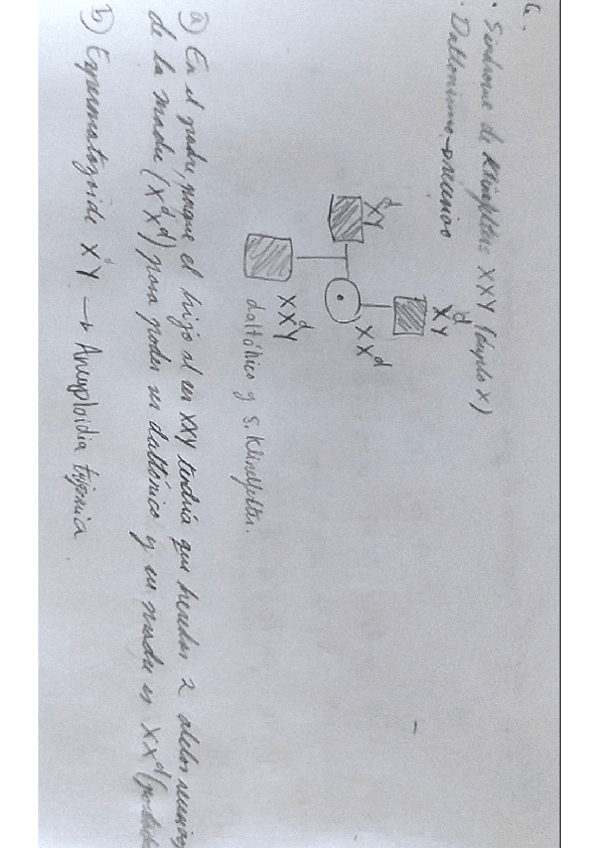 6.
• Síndrome de Klinefelter XXY (duplo X)
• Daltonismo → recesivo
X^dY
X^dY
XX^d
XX^dY
daltónico y S. Klinefelter.
a) En el padre, porque el hijo al ser XXY tendría que heredar 2 alelos recesivos
de la madre (X^dX^d) para poder ser daltónico y su madre es XX^d
b) Espermatozoide X^dY → Aneuploidia trisomía.